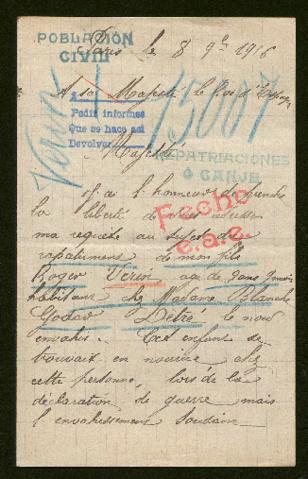 POBLACIÓN
CIVIL
Paris le 8 9bre 1916
A sa Majesté le Roi d'Espagne
15007
Verin
Pedir informes
Que se hace así
Devolver
Majesté
REPATRIACIONES
O CANJE
J'ai l'honneur de prendre
la liberté de vous adresser
Fecho
e.a.e.
ma requête au sujet du
rapatriment de mon fils
Roger Verin age de 3 ans
habitant chez Madame Blanche
Godar Detré le nord
envahis. Cet enfant se
trouvait en nourrice chez
cette personne, lors de la
déclaration de guerre mais
l'envahissement soudain